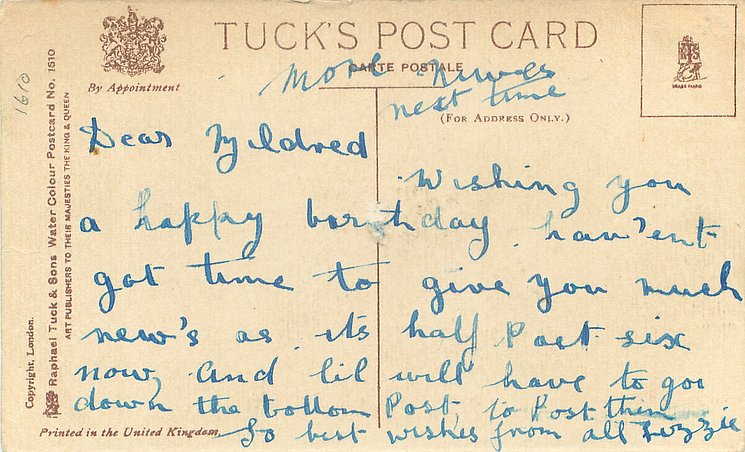 TUCK'S POST CARD
CARTE POSTALE
By Appointment
(FOR ADDRESS ONLY.)
TRADE MARK
1610
Raphael Tuck & Sons Water Colour Postcard No. 1610
ART PUBLISHERS TO THEIR MAJESTIES THE KING & QUEEN
Copyright, London.
More newes
next time
Dear Mildred
Wishing you
a happy barthday, han'ent
got time to give you much
new's as its half Past six
now, and lil will have to goi
down the bottom Post to Post them
So best wishes from all Lizzie
Printed in the United Kingdom.